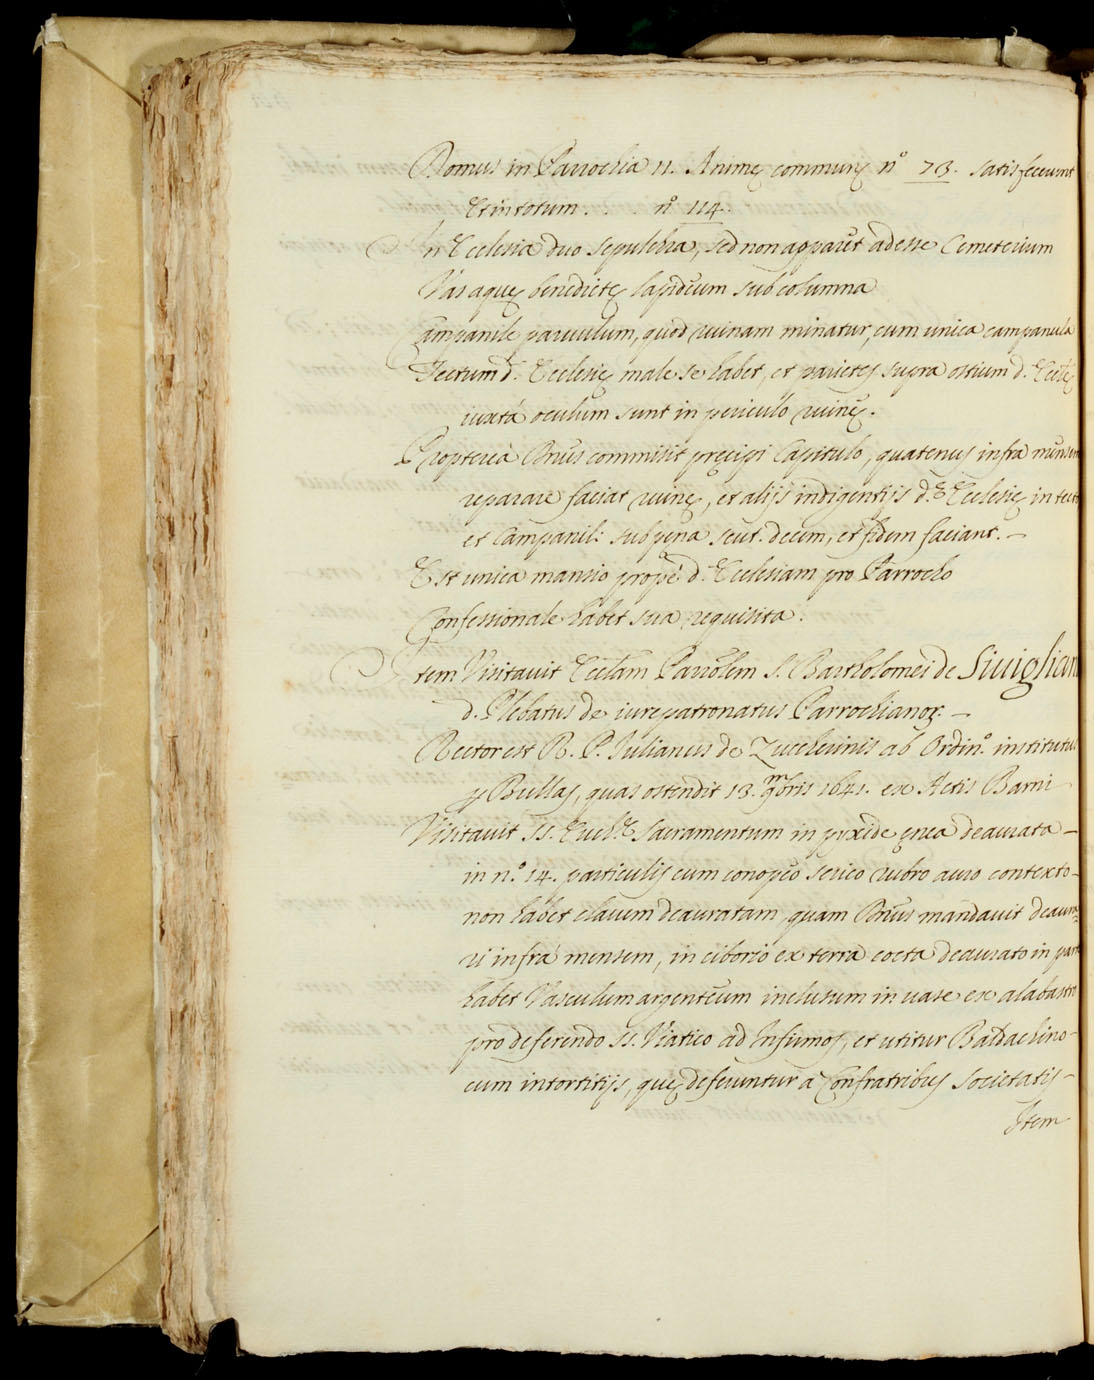 Domus in Parrochia 11. Animę communę nº 73. satisfecerunt
Et in totum . . . nº 114.
In Ecclesia duo sepulchra, sed non apparet adesse Cemeterium
Vas aquę benedictę lapideum sub columna
Campanile parvulum, quod ruinam minatur, cum unica campanula
Tectum d. Ecclesię male se habet, et parietes supra ostium d. Ecclę
iuxtà oculum sunt in periculo ruinę.
Proptereà Dn̄us commisit pręcipi Capitulo, quatenus infra mensem
reparare faciat ruinę, et alijs indigentijs d.ę Ecclesię in tecto
et Campanil: sub pena scut. decem, et fidem faciant. –
Est unica mansio propè d. Ecclesiam pro Parrocho
Confessionale habet sua requisita.
Item Visitavit Eccl̄am Parrōlem S. Bartholomei de Sivigliano
d. Plebatus de iurepatronatus Parrochianor. –
Rector est R. P. Iulianus de Zuccherinis ab Ordin.º institutus
p Bullas, quas ostendit 13. 9mbris 1641. ex Actis Barni
Visitavit SS. Euch.ę Sacramentum in pyxide ęnea deaurata –
in n.º 14. particulis cum conopęo serico rubro auro contexto –
non habet clavem deauratam, quam Dn̄us mandavit deaura=
ri infrà mensem, in ciborio ex terra cocta deaurato in parte
habet Vasculum argenteum inclusum in vase ex alabastro
pro deferendo SS. Viatico ad Infirmos, et utitur Baldachino –
cum intortitijs, quę deferuntur a Confratribus Societatis –
Item